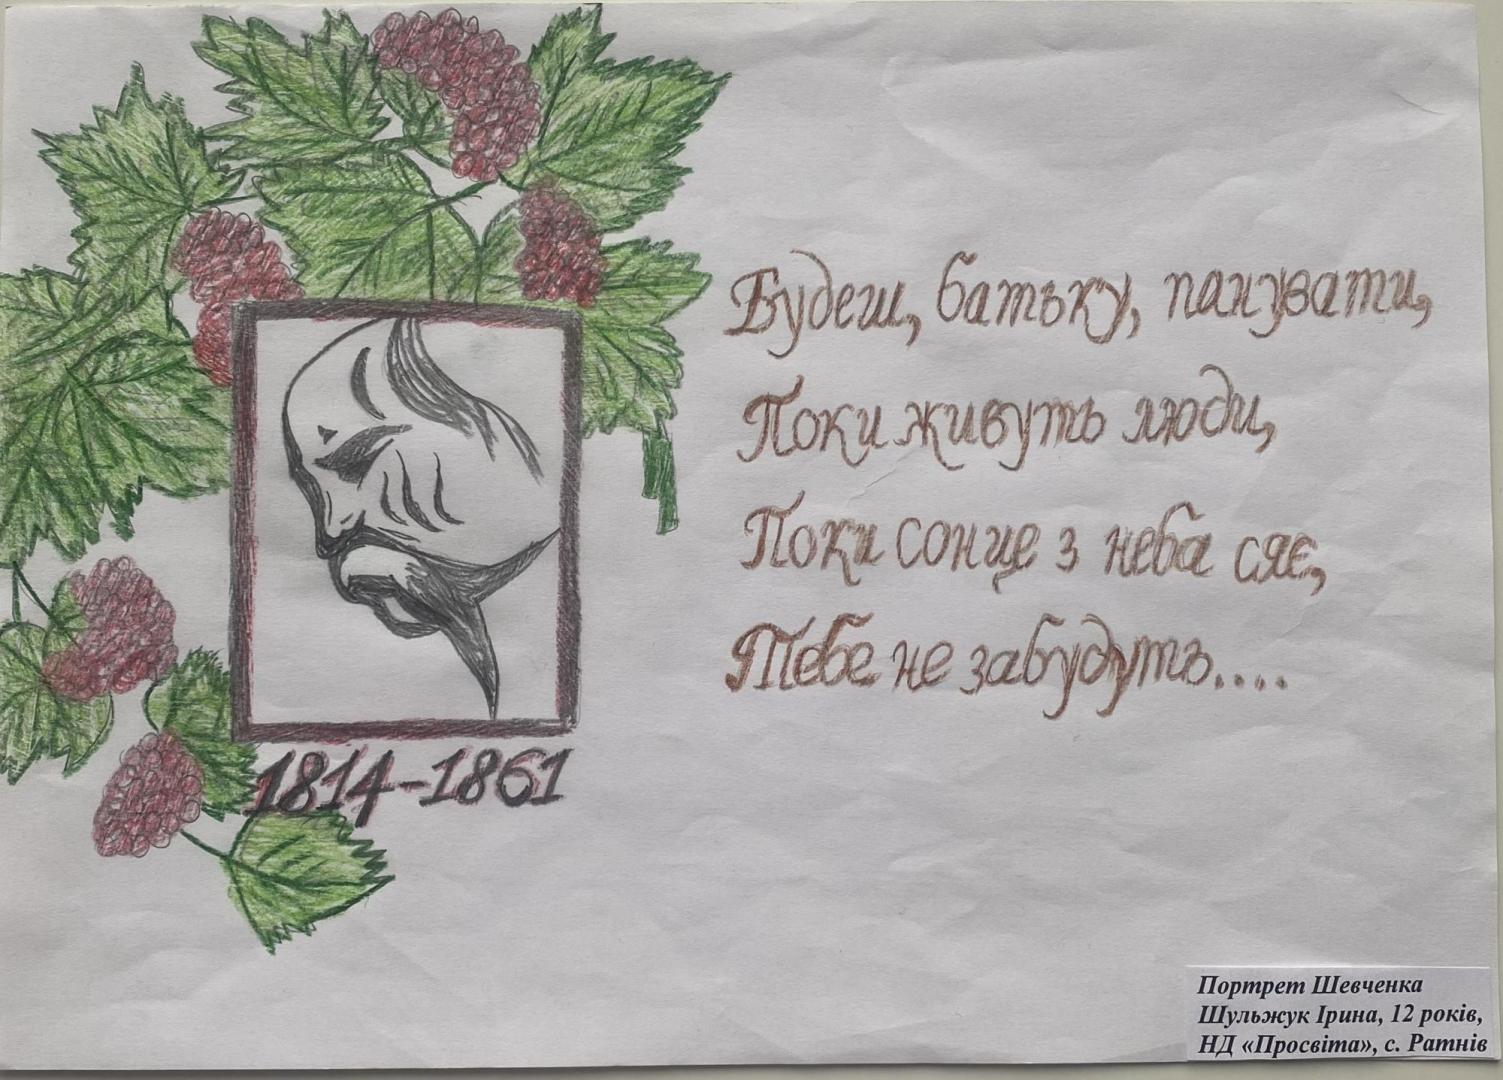 Будеш, батьку, панувати,
Поки живуть люди,
Поки сонце з неба сяє,
Тебе не забудуть....
1814-1861
Портрет Шевченка
Шульжук Ірина, 12 років,
НД «Просвіта», с. Ратнів